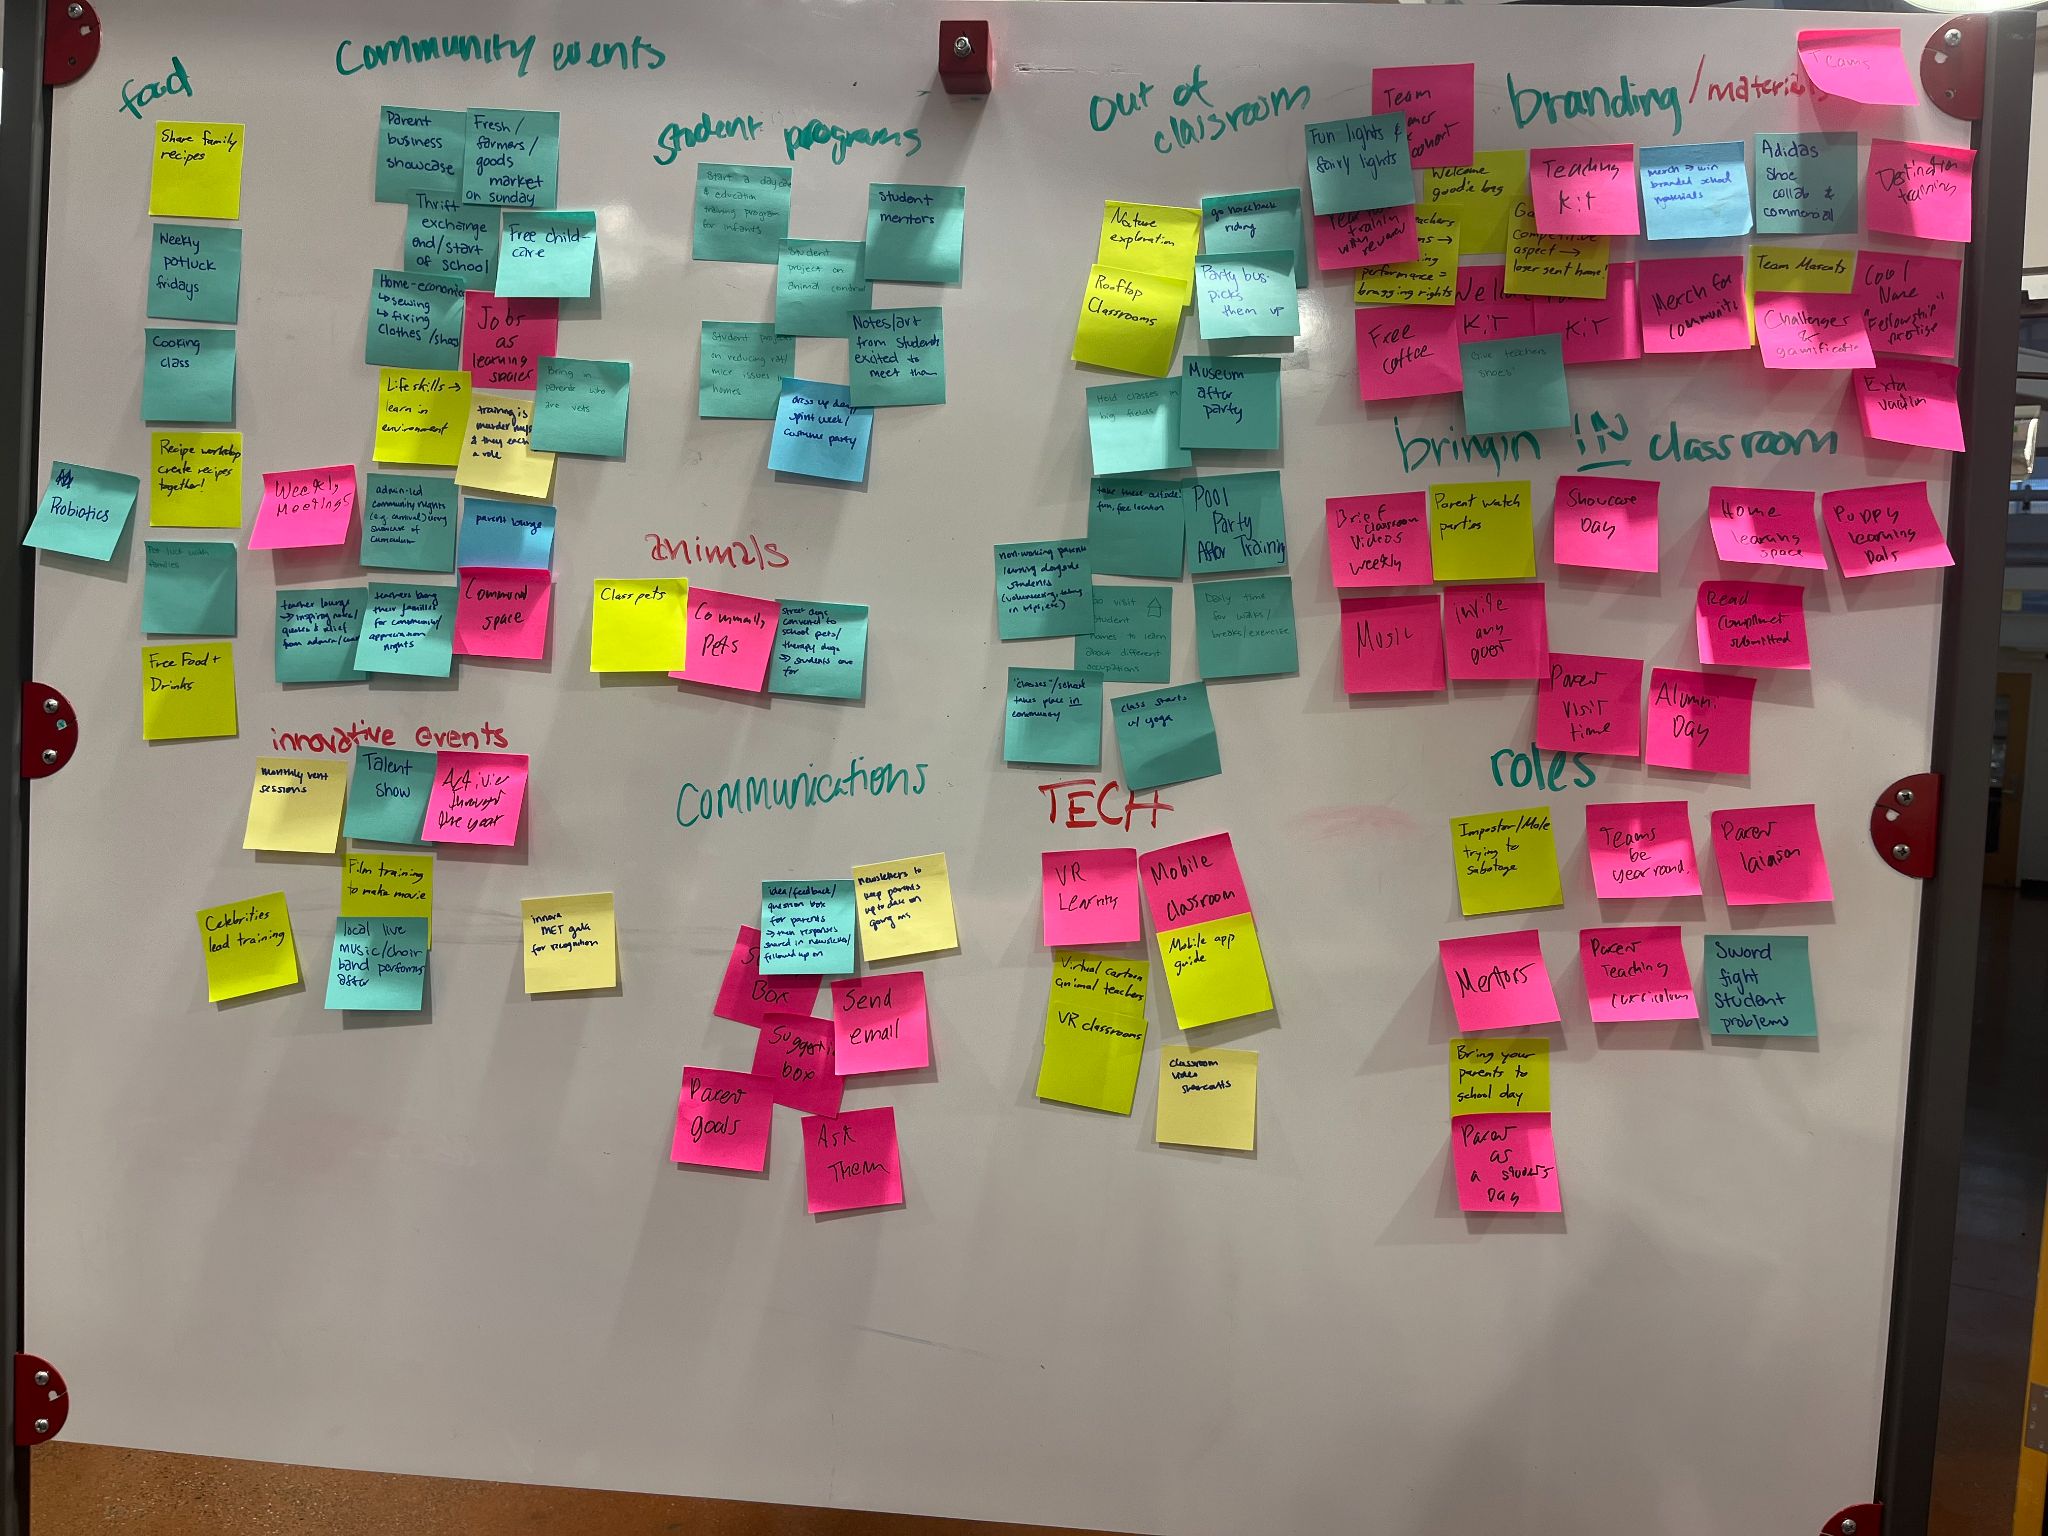 food
Share family
recipes
Weekly
potluck
fridays
Cooking
class
Recipe workshop
create recipes
together!
Probiotics
Pot luck with
families
Free Food +
Drinks
Community events
Parent
business
showcase
Fresh /
farmers /
goods
market
on sunday
Thrift
exchange
end/start
of school
Free child-
care
Home-economics
↳ sewing
↳ fixing
clothes /shoes
Jobs
as
learning
spaces
Life skills →
learn in
environment
training is
murder mystery
& they each
a role
Bring in
parents who
are vets
Weekly
Meetings
admin-led
community nights
(e.g. carnival) using
showcase of
curriculum
parent lounge
teacher lounge
→ inspiring notes/
quotes & relief
from admin/
teachers bring
their families
for community/
appreciation
nights
Communal
space
student programs
Start a daycare
& education
training program
for infants
Student
mentors
Student
project on
animal control
Student project
on reducing rat/
mice issues in
homes
Notes/art
from students
excited to
meet them
dress up day/
spirit week/
costume party
animals
Class pets
Community
Pets
street dogs
converted to
school pets/
therapy dogs
→ students care
for
innovative events
monthly vent
sessions
Talent
show
Activies
throught
the year
Film training
to make movie
Celebrities
lead training
local live
music/choir
band performs
after
innova
MET gala
for recognition
Communications
idea/feedback/
question box
for parents
→ then responses
shared in newsletter/
followed up on
Newsletters to
keep parents
up to date on
going ons
Box
Send
email
Suggesti
box
Parent
goals
Ask
Them
out of
classroom
Nature
exploration
go horseback
riding
Rooftop
Classrooms
Party bus
picks
them up
Hold classes in
big fields
Museum
after
party
take these outside!
fun, free location
Pool
Party
After Training
non-working parents
learning alongside
students
(volunteering, taking
in trips, etc)
Go visit
student
homes to learn
about different
occupations
Daily time
for walks/
breaks/exercise
"classes"/school
takes place in
community
class starts
w/ yoga
TECH
VR
Learning
Mobile
classroom
Mobile app
guide
Virtual cartoon
animal teachers
VR classrooms
classroom
video
branding / materials
Teams
Team
cohort
Fun lights &
fairy lights
training
with
reward
Welcome
goodie bag
performance =
bragging rights
Teaching
Kit
Competitive
aspect →
loser sent home!
merch → win
branded school
materials
Adidas
shoe
collab &
commercial
Destination
training
Free
coffee
Kit
Kit
Give teachers
shoes
Merch for
community
Team Mascots
Challenges
&
gamificatio
Cool
Name
"Fellowship"
prestige
Exta
vacation
bringin IN classroom
Brief
classroom
videos
weekly
Parent watch
parties
Showcase
Day
Home
learning
space
Puppy
learning
Dals
Music
invite
any
guest
Read
compliment
submitted
Parent
visit
time
Alumni
Day
roles
Impostor/Mole
trying to
sabotage
Teams
be
year round.
Parent
laiason
Mentors
Parent
Teaching
curriculum
Sword
fight
student
problems
Bring your
parents to
school day
Parent
as
a students
Day